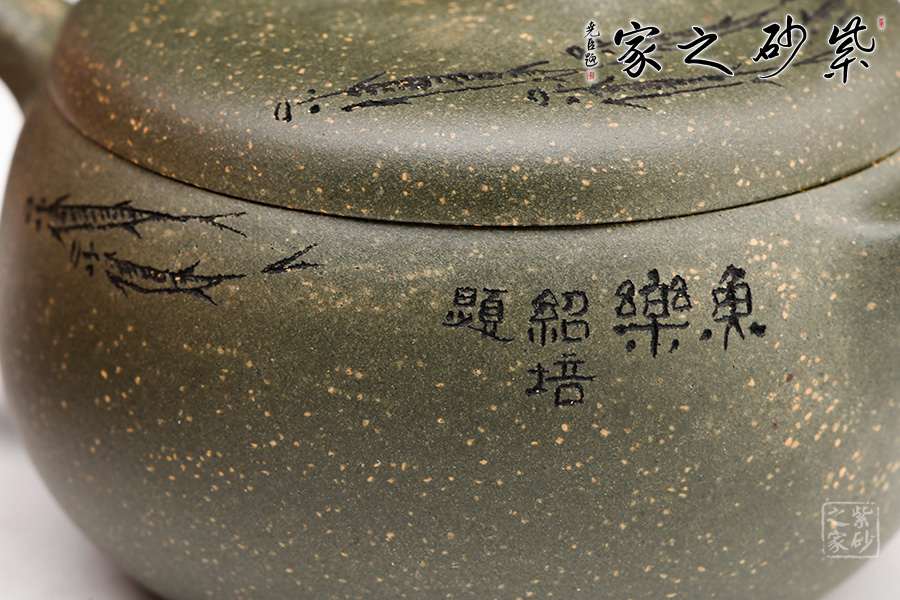 紫砂之家
堯臣題
魚樂
紹培
題
紫砂
之家